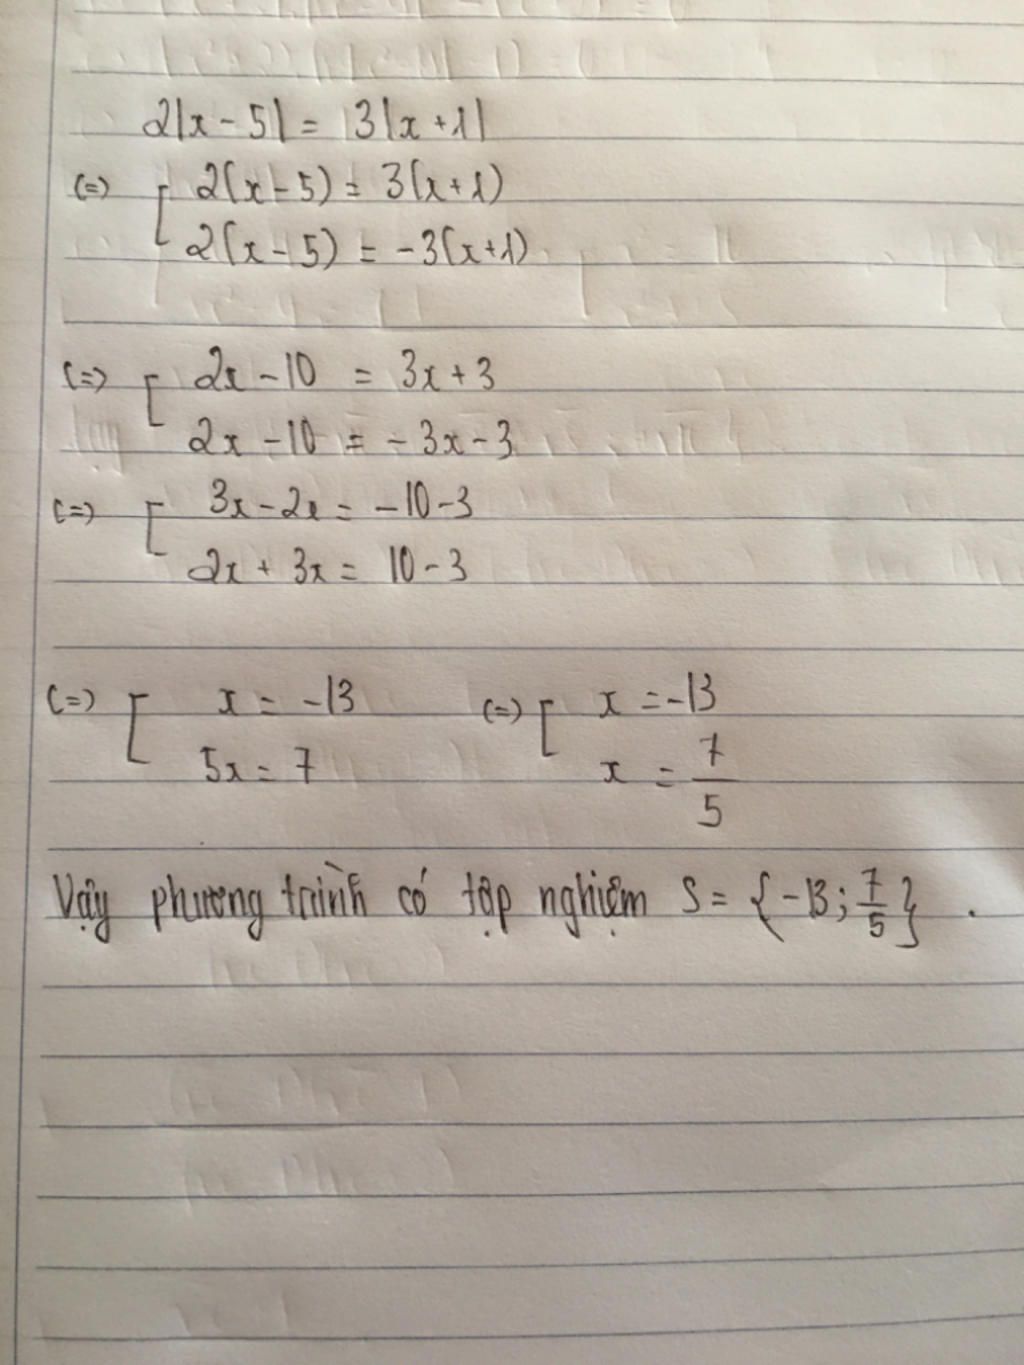 2|x - 5| = |3|x + 1|
(=) [ 2(x - 5) = 3(x + 1)
2(x - 5) = -3(x + 1)
(=) [ 2x - 10 = 3x + 3
2x - 10 = -3x - 3
(=) [ 3x - 2x = -10 - 3
2x + 3x = 10 - 3
(=) [ x = -13 (=) [ x = -13
5x = 7 x = 7/5
Vậy phương trình có tập nghiệm S = {-13; 7/5}.